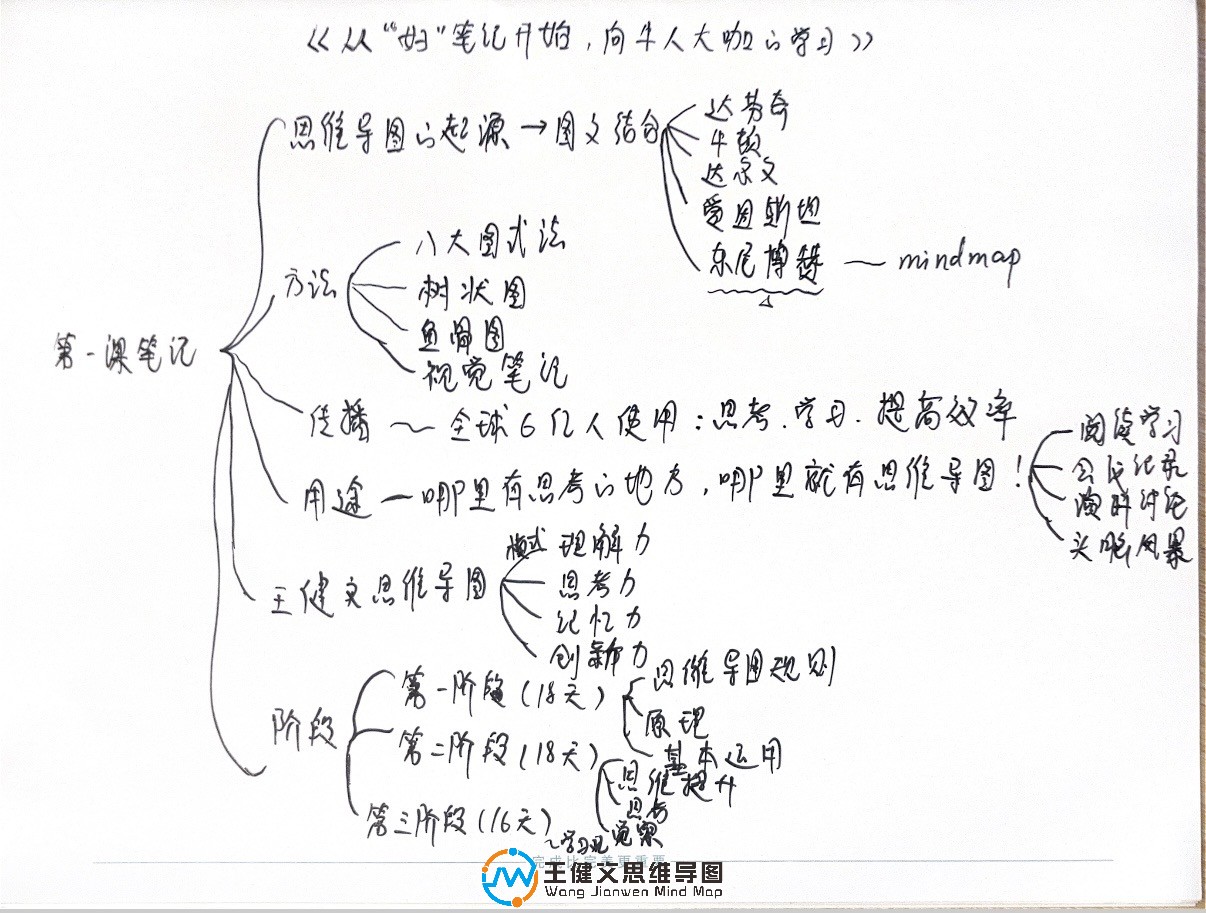 《从“妇”笔记开始，向牛人大咖的学习》
第一课笔记
思维导图的起源→图文结合
达芬奇
牛顿
达尔文
爱因斯坦
东尼博赞 — mindmap
方法
八大图式法
树状图
鱼骨图
视觉笔记
传播～全球6亿人使用：思考.学习.提高效率
用途—哪里有思考的地方，哪里就有思维导图！
阅读学习
会议记录
演讲讨论
头脑风暴
王健文思维导图
模式 理解力
思考力
记忆力
创新力
阶段
第一阶段（18天）
思维导图规则
原理
基本运用
第二阶段（18天）
思维提升
思考
觉察
第三阶段（16天）
～学习见
完成比完美更重要
王健文思维导图
Wang Jianwen Mind Map